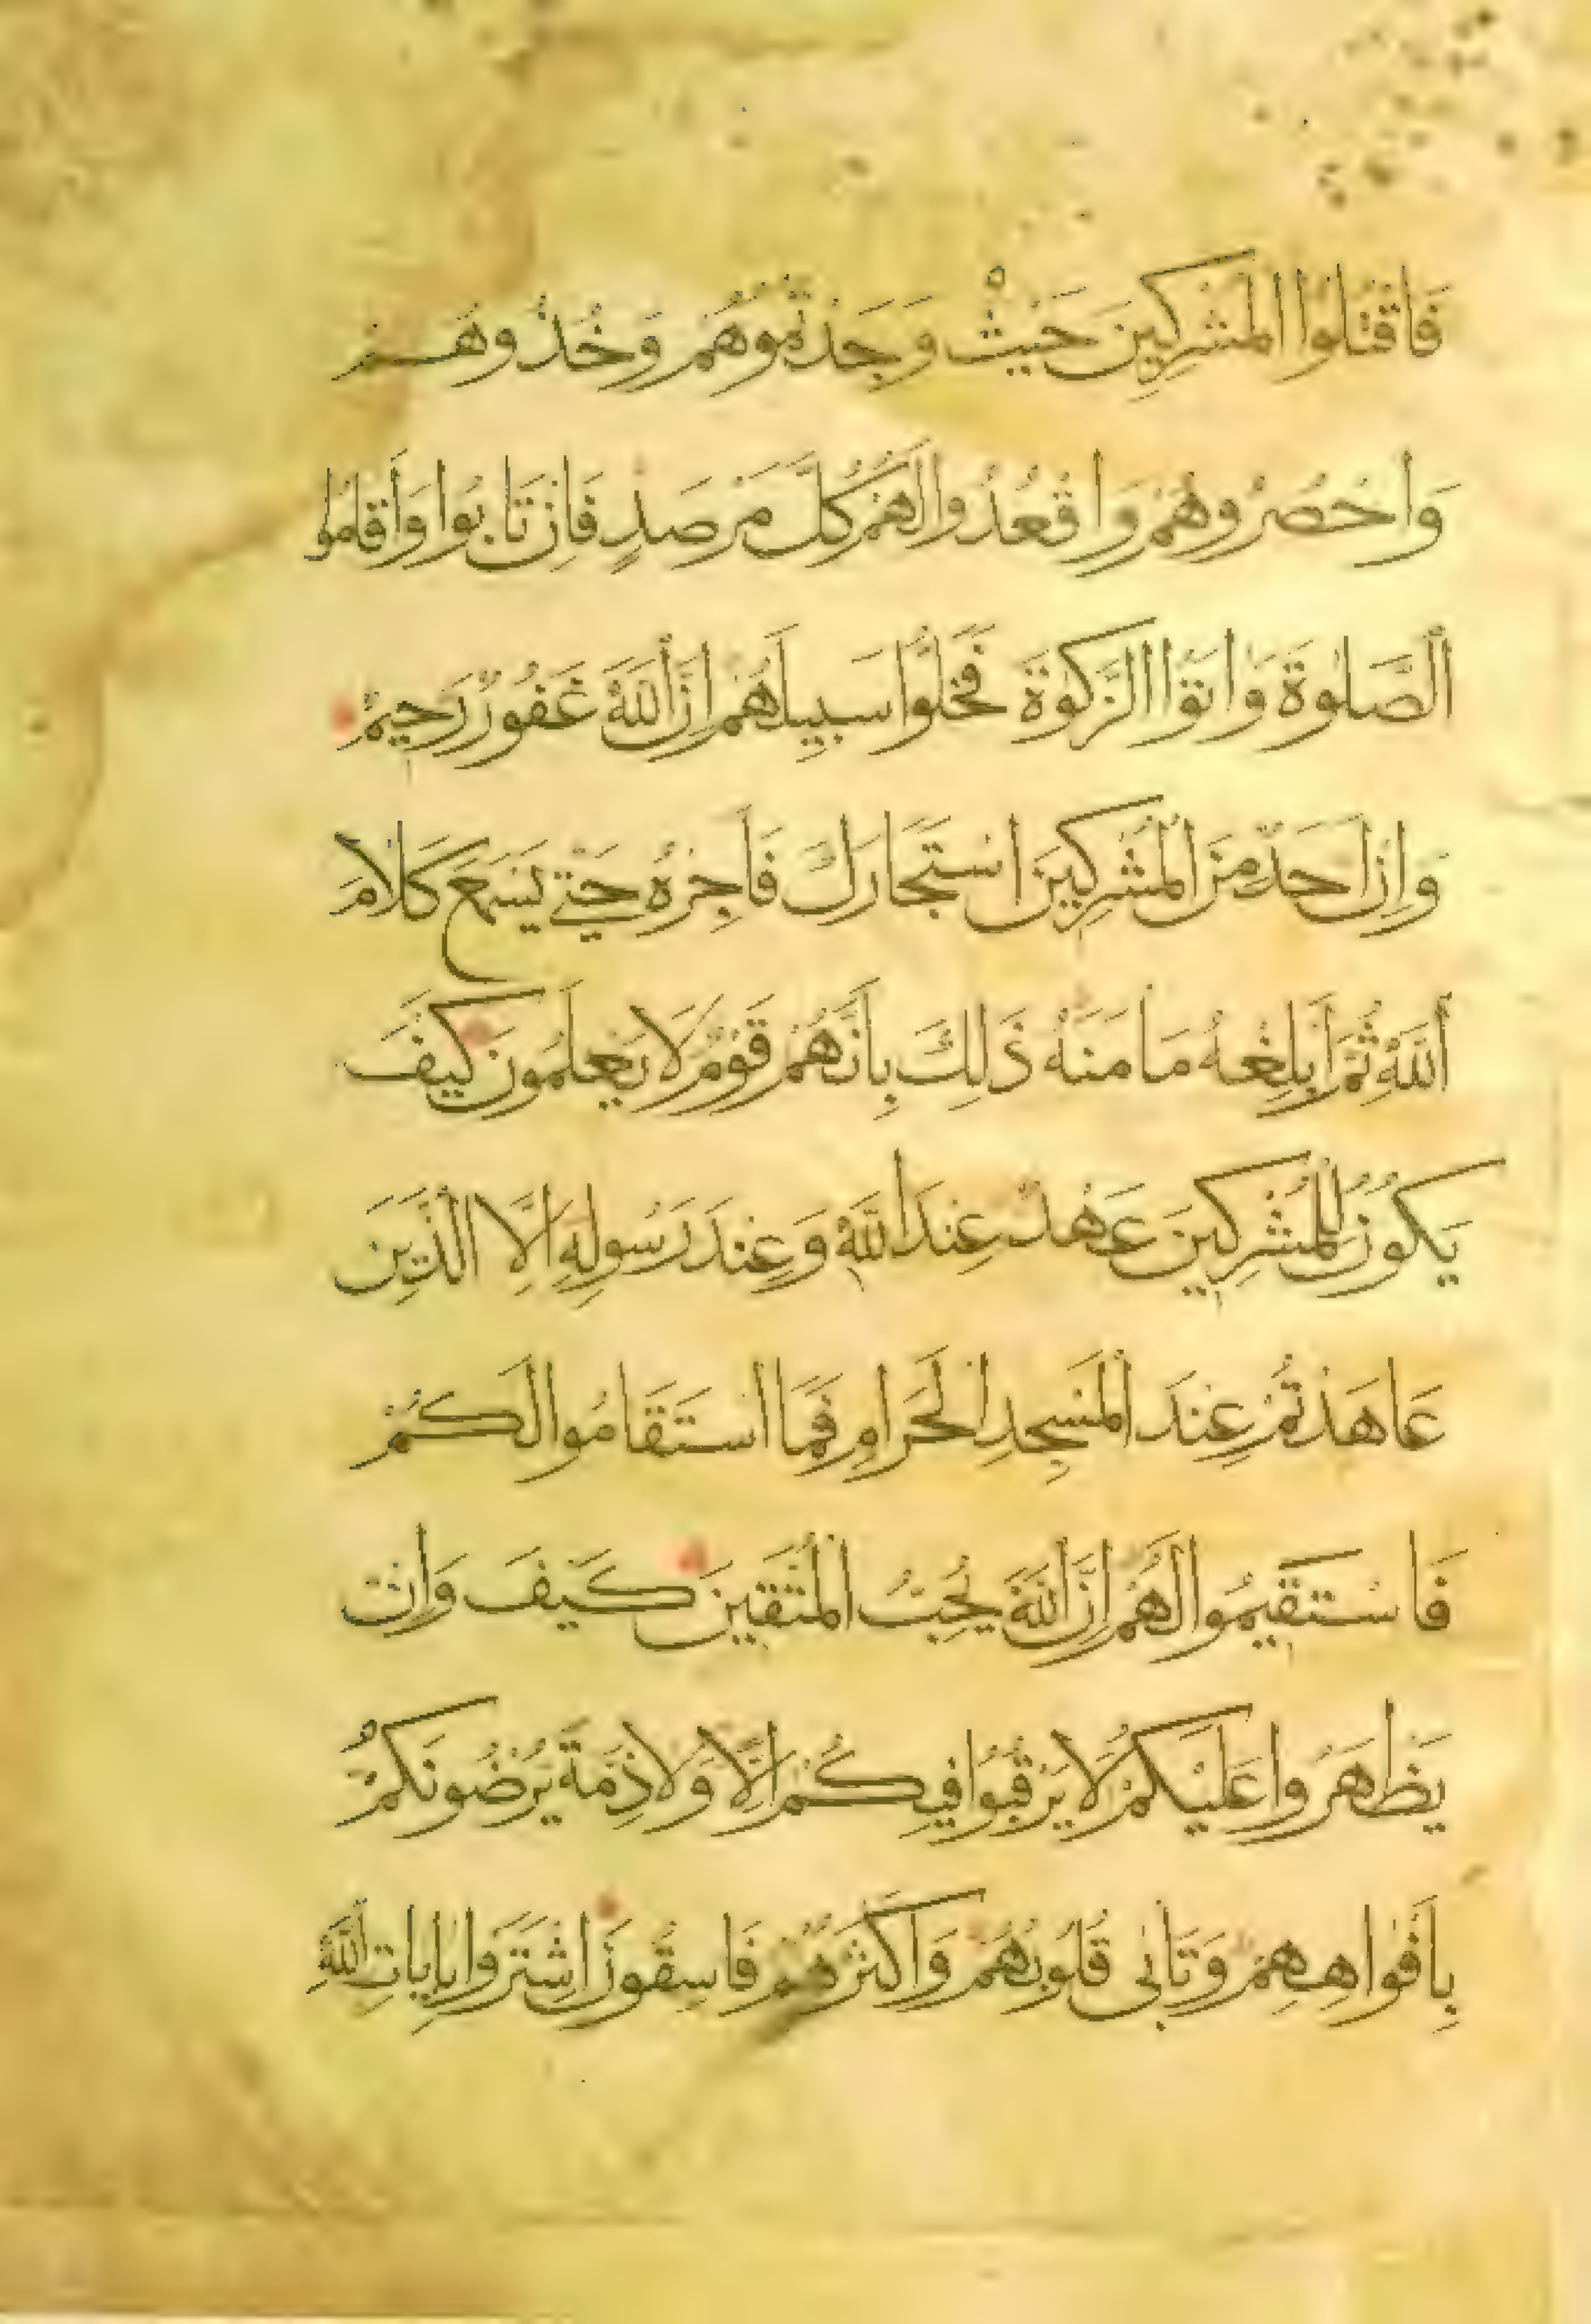 فَاقْتُلُوا الْمُشْرِكِينَ حَيْثُ وَجَدْتُمُوهُمْ وَخُذُوهُمْ
وَاحْصُرُوهُمْ وَاقْعُدُوا لَهُمْ كُلَّ مَرْصَدٍ فَإِنْ تَابُوا وَأَقَامُوا
الصَّلٰوةَ وَاٰتَوُا الزَّكٰوةَ فَخَلُّوا سَبِيلَهُمْ إِنَّ اللَّهَ غَفُورٌ رَحِيمٌ
وَإِنْ أَحَدٌ مِنَ الْمُشْرِكِينَ اسْتَجَارَكَ فَأَجِرْهُ حَتَّى يَسْمَعَ كَلَامَ
اللَّهِ ثُمَّ أَبْلِغْهُ مَأْمَنَهُ ذَلِكَ بِأَنَّهُمْ قَوْمٌ لَا يَعْلَمُونَ كَيْفَ
يَكُونُ لِلْمُشْرِكِينَ عَهْدٌ عِنْدَ اللَّهِ وَعِنْدَ رَسُولِهِ إِلَّا الَّذِينَ
عَاهَدْتُمْ عِنْدَ الْمَسْجِدِ الْحَرَامِ فَمَا اسْتَقَامُوا لَكُمْ
فَاسْتَقِيمُوا لَهُمْ إِنَّ اللَّهَ يُحِبُّ الْمُتَّقِينَ كَيْفَ وَإِنْ
يَظْهَرُوا عَلَيْكُمْ لَا يَرْقُبُوا فِيكُمْ إِلًّا وَلَا ذِمَّةً يُرْضُونَكُمْ
بِأَفْوَاهِهِمْ وَتَأْبَى قُلُوبُهُمْ وَأَكْثَرُهُمْ فَاسِقُونَ اشْتَرَوْا بِاٰيَاتِ اللَّهِ